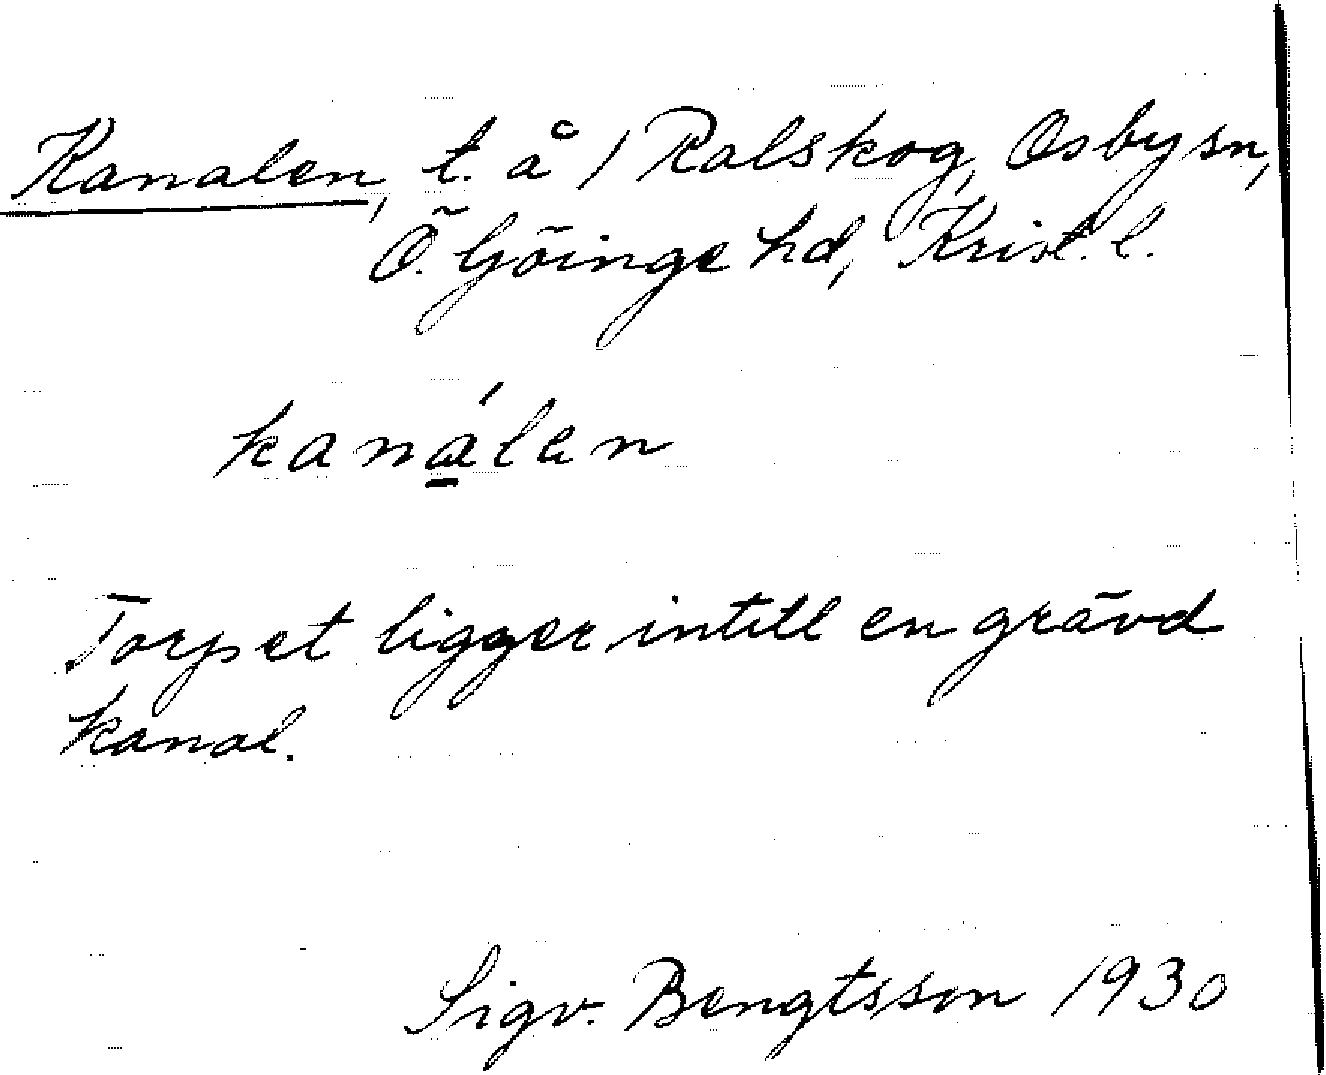 Kanalen, t. å 1 Ralskog, Osby sn,
Ö. Göinge hd, Krist. l.
kanálen
Torpet ligger intill en grävd
kanal.
Sigv. Bengtsson 1930